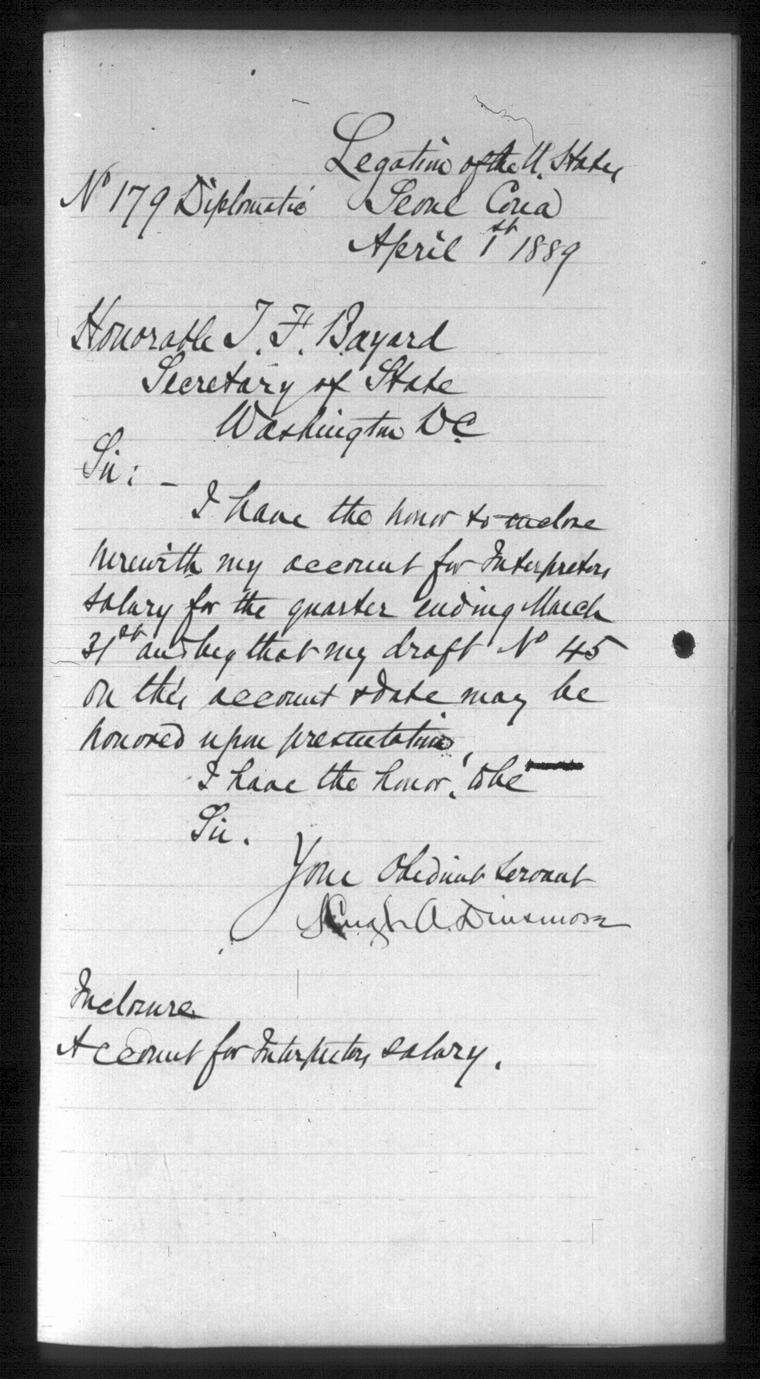 Legation of the U. States
No 179 Diplomatic Seoul Corea
April 1st 1889
Honorable T. F. Bayard
Secretary of State
Washington D.C.
Sir: -
I have the honor to inclose
herewith my account for Interpreters
salary for the quarter ending March
31st and beg that my draft No 45
on this account & date may be
honored upon presentation,
I have the honor, to be
Sir.
Your Obedient Servant
Hugh A. Dinsmore
Inclosure
Account for Interpreters salary.